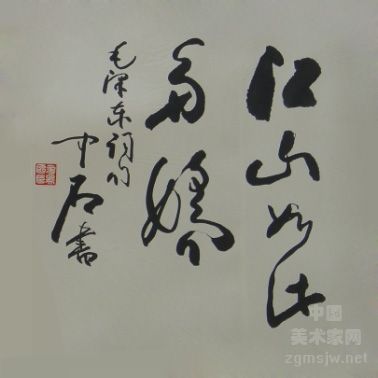 江山如此
多娇
毛泽东词句
中石书
中国
美术家网
zgmsjw.net